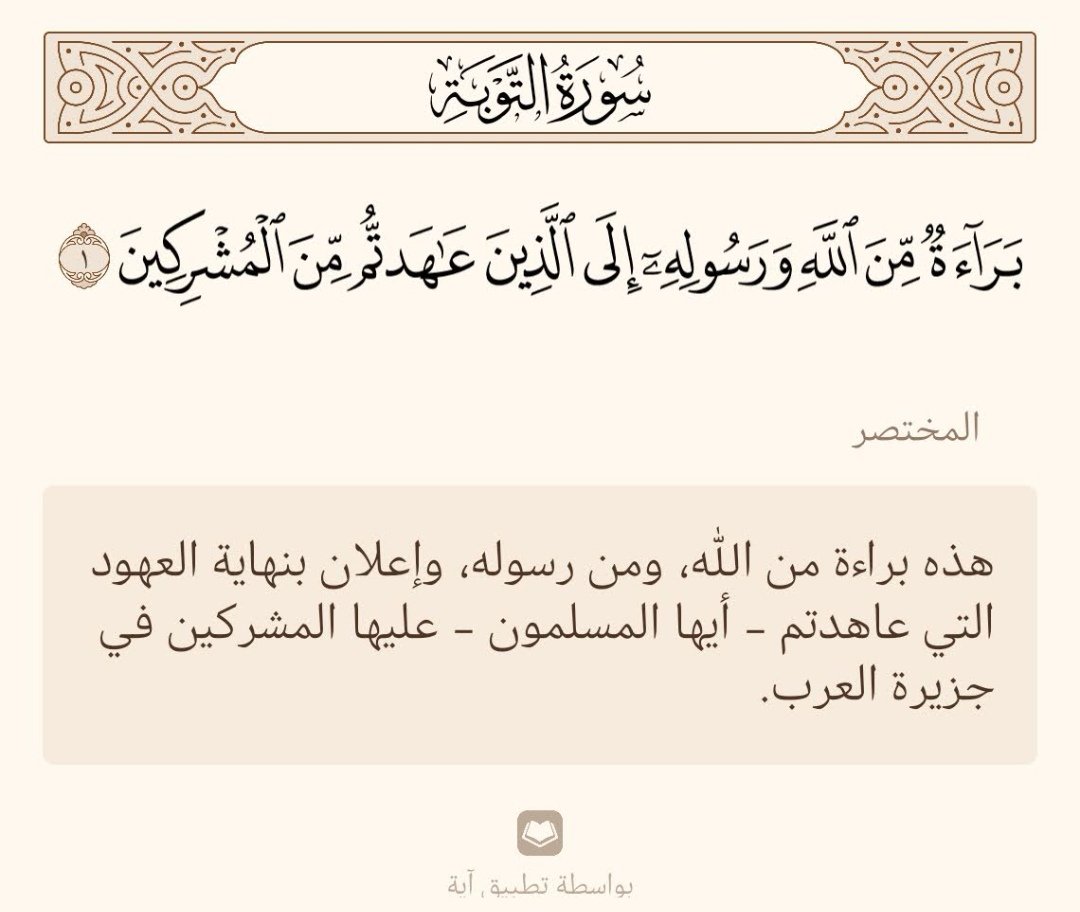 سُورَةُ التَّوۡبَةِ
بَرَآءَةٞ مِّنَ ٱللَّهِ وَرَسُولِهِۦٓ إِلَى ٱلَّذِينَ عَٰهَدتُّم مِّنَ ٱلۡمُشۡرِكِينَ ١
المختصر
هذه براءة من الله، ومن رسوله، وإعلان بنهاية العهود
التي عاهدتم – أيها المسلمون – عليها المشركين في
جزيرة العرب.
بواسطة تطبيق آية